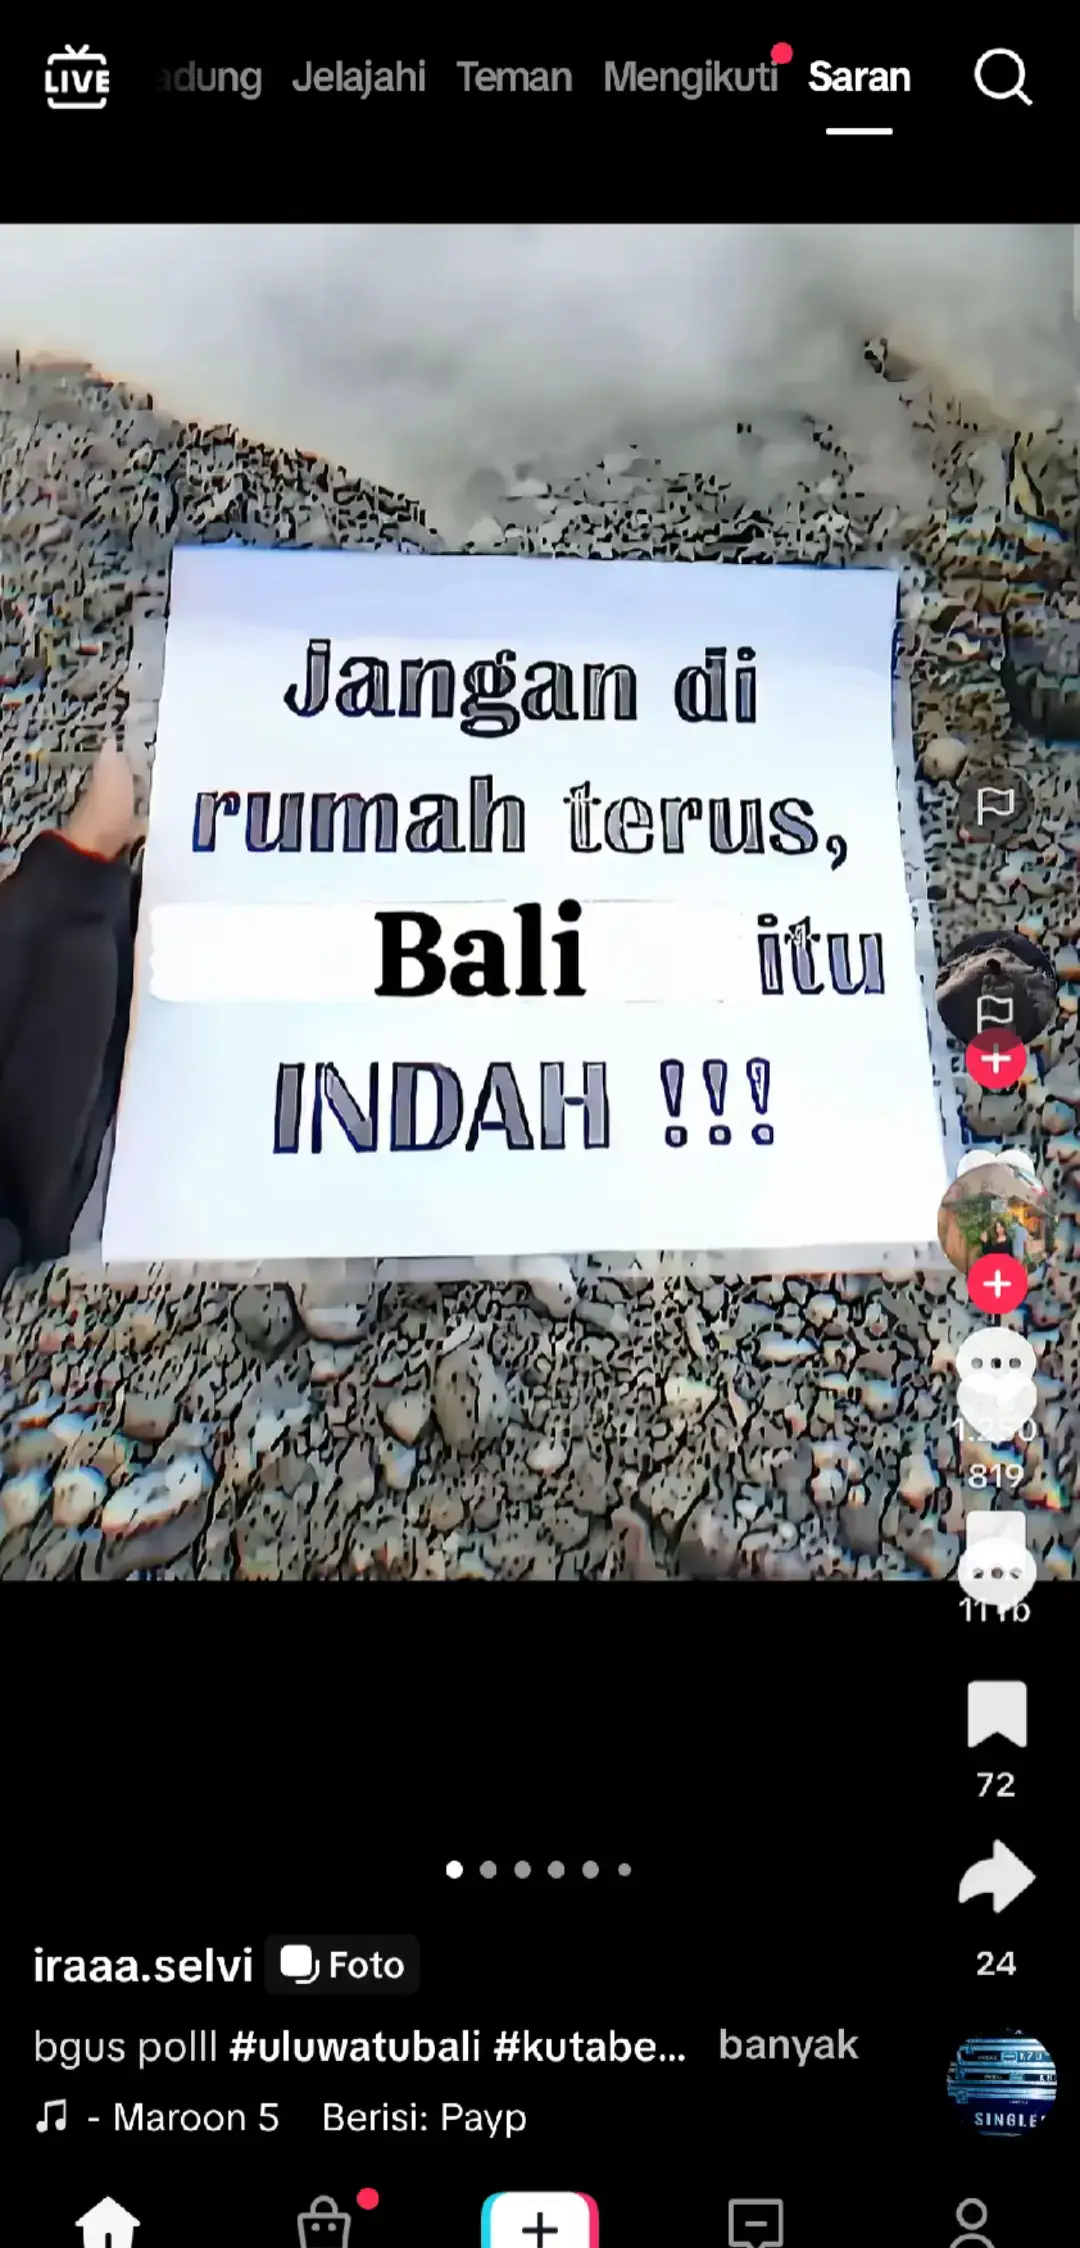 LIVE
adung Jelajahi Teman Mengikuti Saran
Jangan di
rumah terus,
Bali itu
INDAH !!!
1.250
819
11 rb
72
24
iraaa.selvi Foto
bgus polll #uluwatubali #kutabe... banyak
- Maroon 5 Berisi: Payp
SINGLE